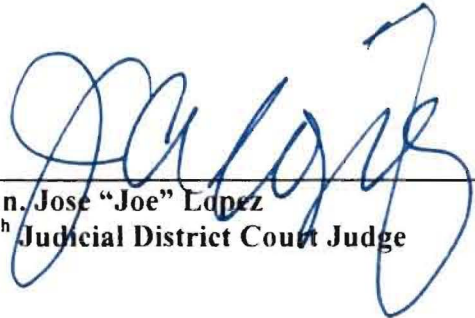 n. Jose “Joe” Lopez
h Judicial District Court Judge